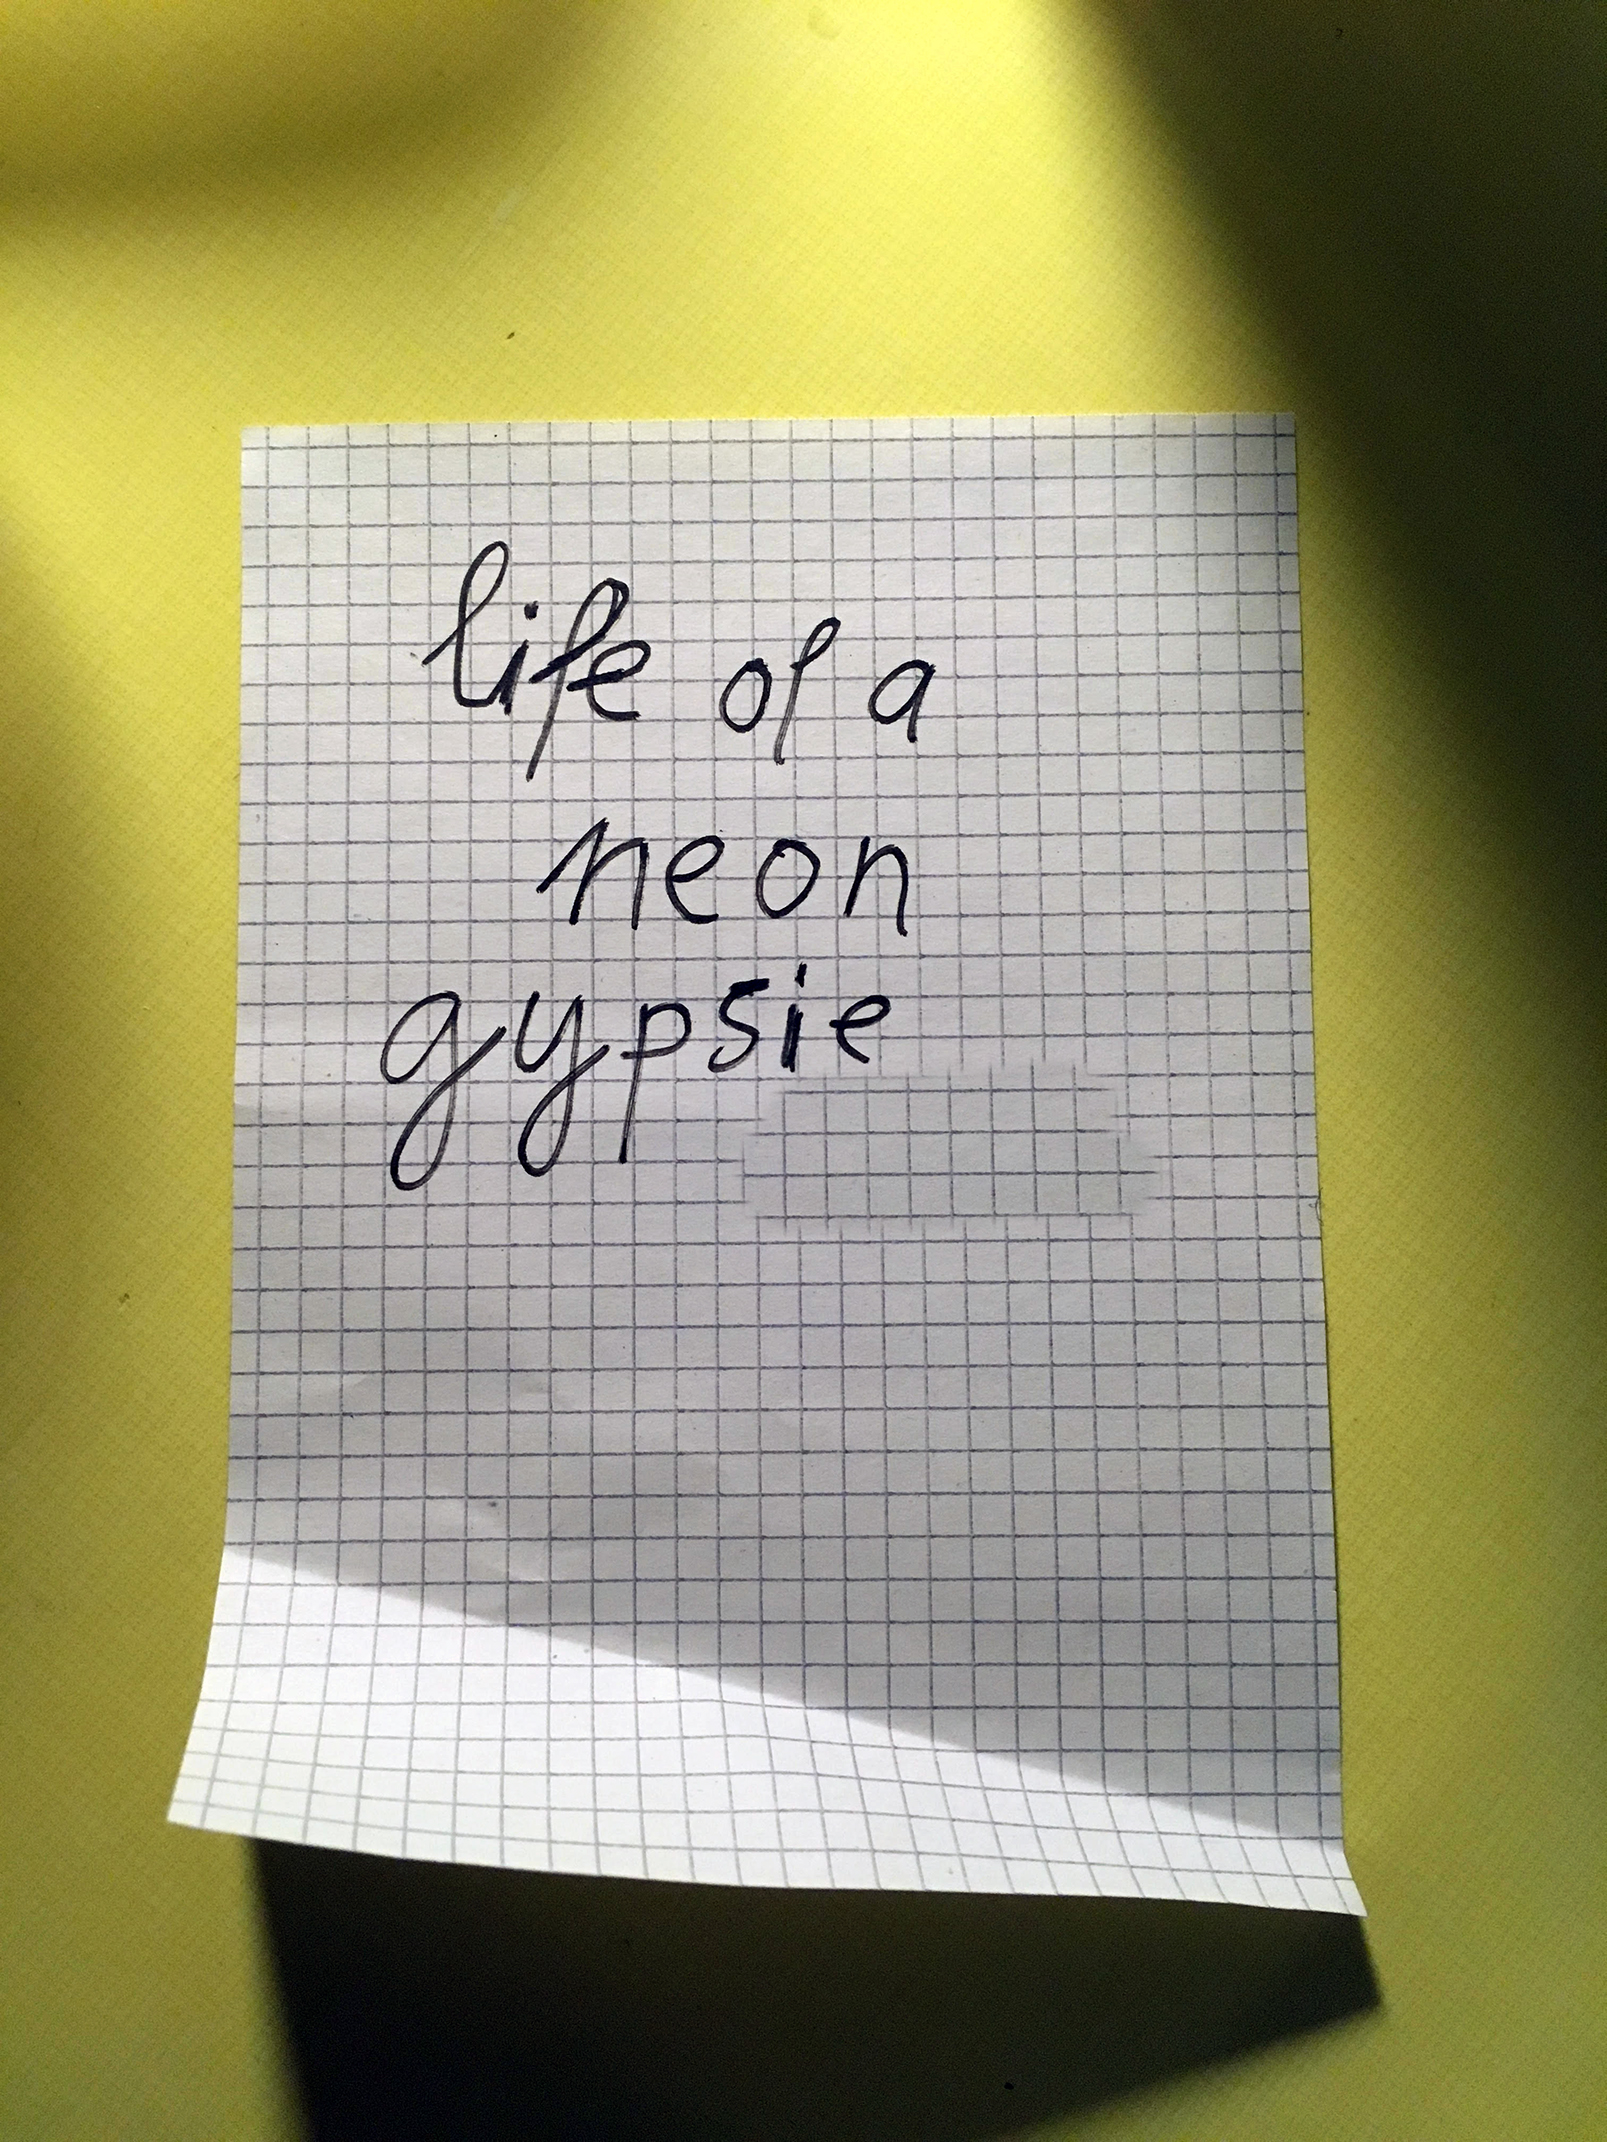 life of a
neon
gypsie